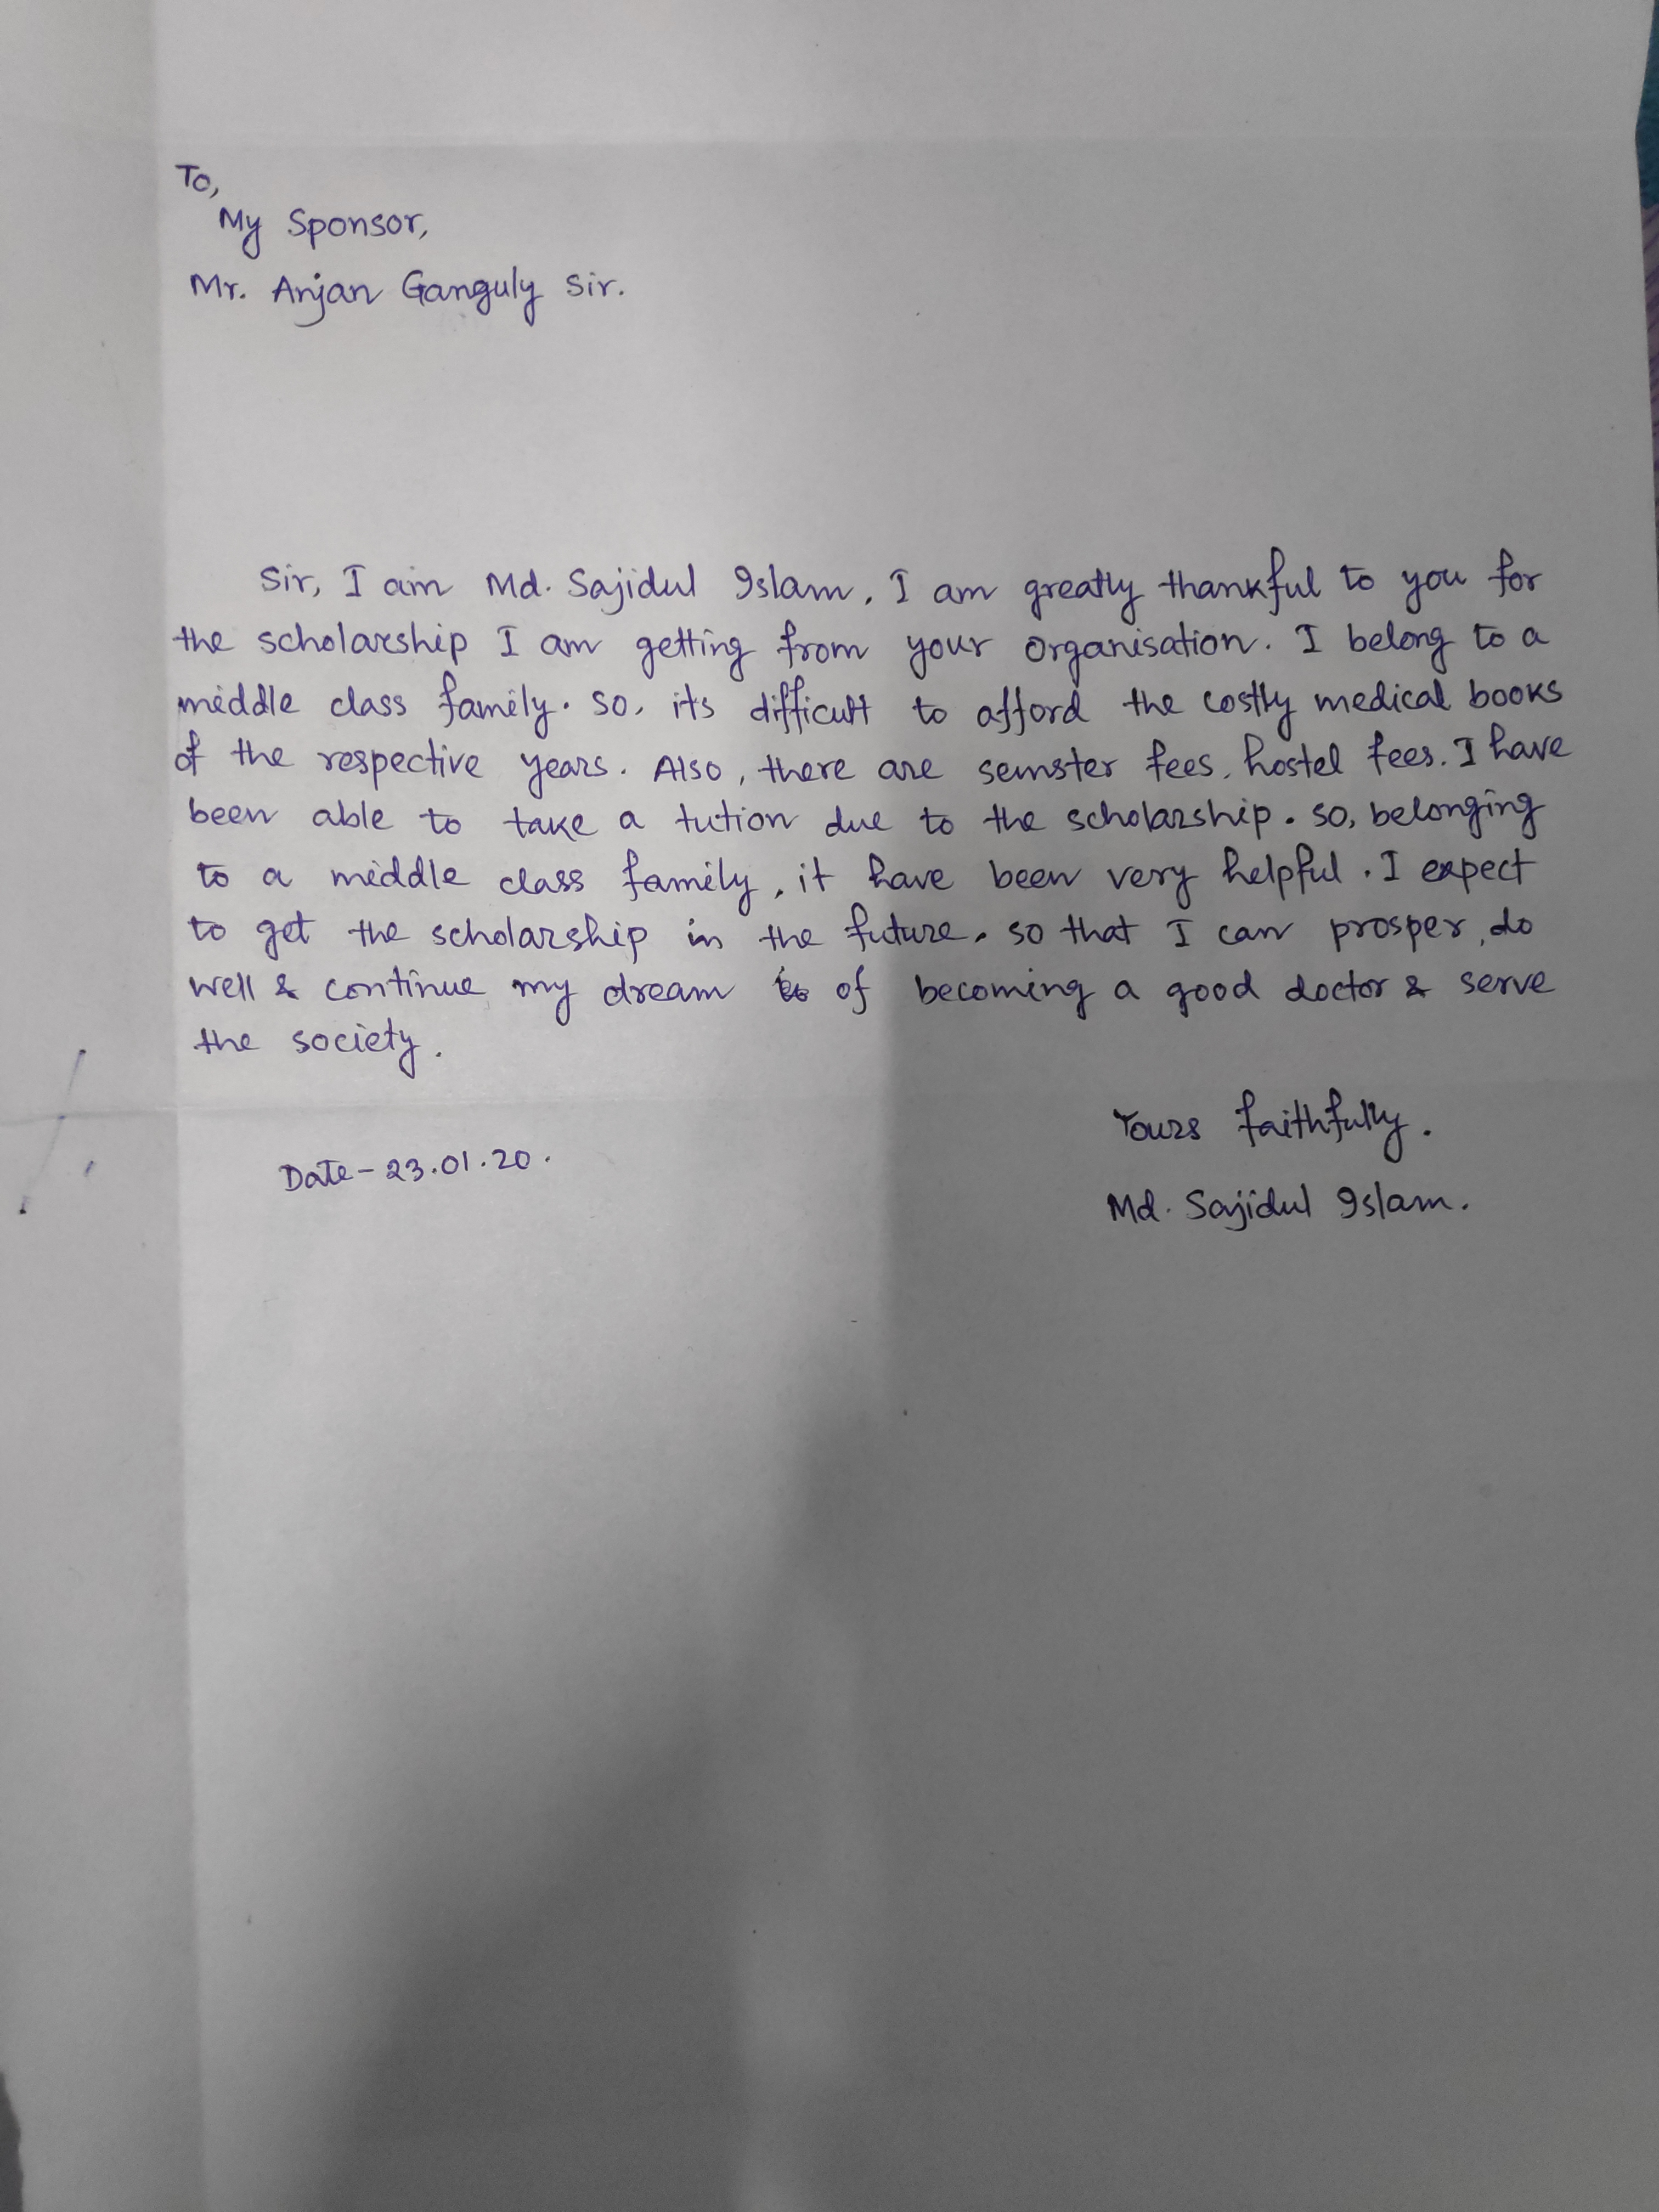 To,
My Sponsor,
Mr. Anjan Ganguly Sir.
Sir, I am Md. Sajidul Islam. I am greatly thankful to you for
the scholarship I am getting from your organisation. I belong to a
middle class family. So, its difficult to afford the costly medical books
of the respective years. Also, there are semster fees, hostel fees. I have
been able to take a tution due to the scholarship. So, belonging
to a middle class family, it have been very helpful. I expect
to get the scholarship in the future. so that I can prosper, do
well & continue my dream of becoming a good doctor & serve
the society.
Yours faithfully.
Date - 23.01.20.
Md. Sajidul Islam.